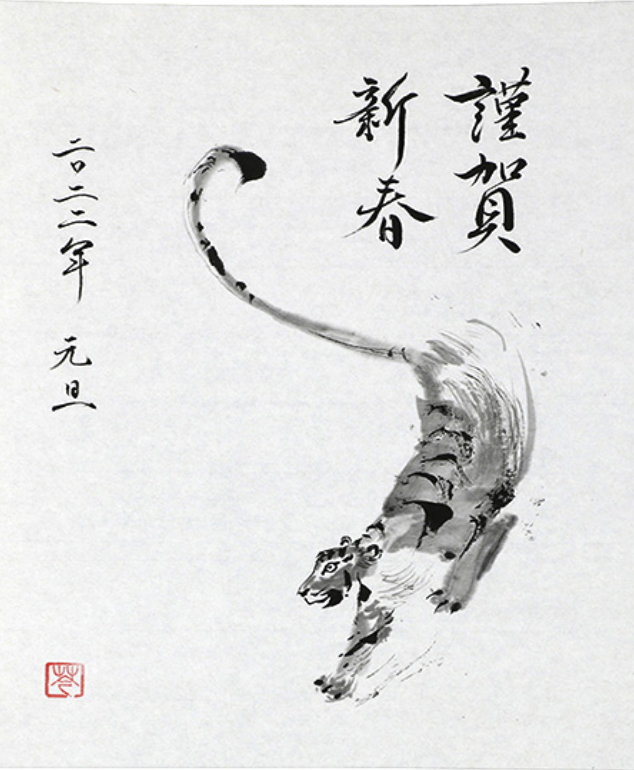 謹賀
新春
二〇二二年 元旦